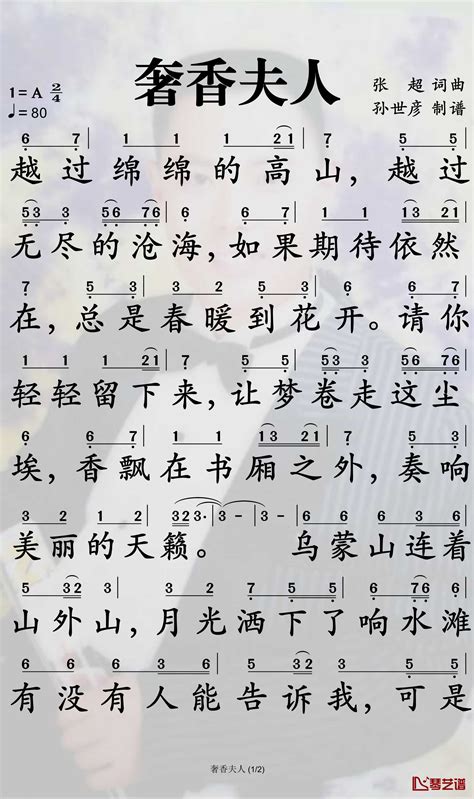 奢香夫人
1=A 2/4
♩=80
张 超 词曲
孙世彦 制谱
6 7 1 1 1 21 7 5 5
越过绵绵的高山，越过
53 3 56 76 5 5 5 3 23
无尽的沧海，如果期待依然
7 5 3 3 1 7 1 3 5 3
在，总是春暖到花开。请你
1 1 1 21 7 5 5 53 3 56 76
轻轻留下来，让梦卷走这尘
6 6 7 1 1 13 21 7 5 5
埃，香飘在书厢之外，奏响
美丽的天籁。 乌蒙山连着
5 32 3 3 1 2 5 7 6 6 3
山外山，月光洒下了响水滩
有没有人能告诉我，可是
奢香夫人 (1/2)
琴艺谱